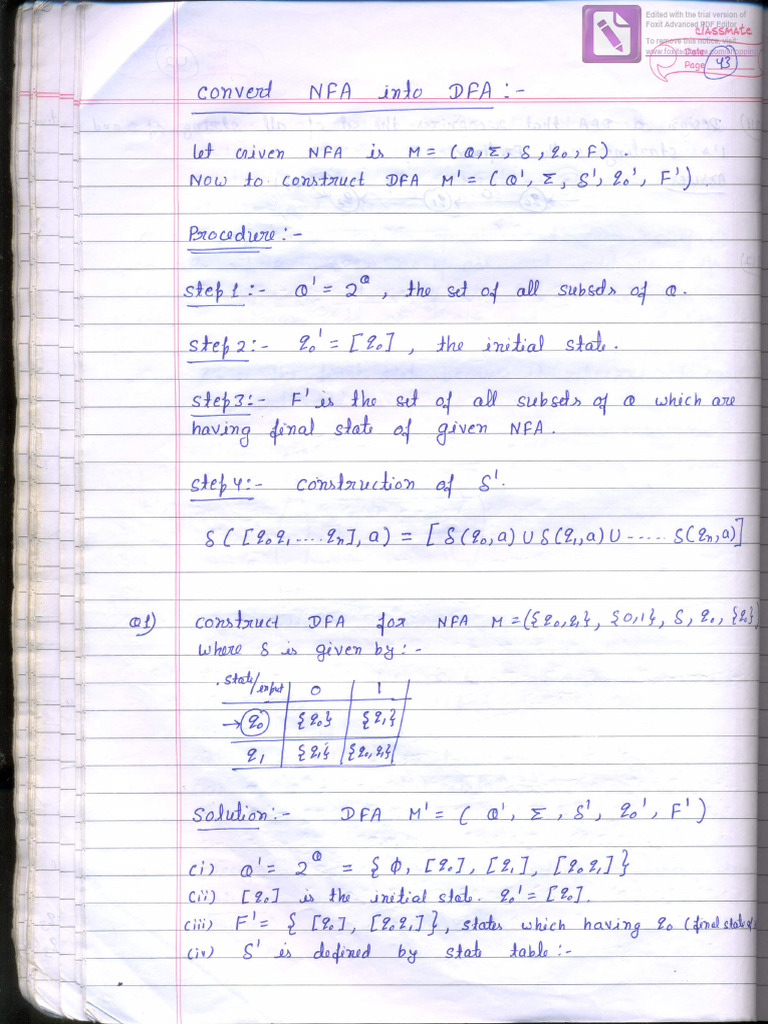 Edited with the trial version of
Foxit Advanced PDF Editor
To remove this notice, visit:
www.foxitsoftware.com/shopping
classmate
Date
Page 43
Convert NFA into DFA :-
Let Given NFA is M = (Q, Σ, δ, q0, F).
Now to construct DFA M' = (Q', Σ, δ', q0', F').
Procedure :-
Step 1 :- Q' = 2^Q, the set of all subsets of Q.
Step 2 :- q0' = [q0], the initial state.
Step 3 :- F' is the set of all subsets of Q which are
having final state of given NFA.
Step 4 :- Construction of δ'.
δ([q0q1....qn], a) = [δ(q0,a) ∪ δ(q1,a) ∪ ..... δ(qn,a)]
Q1) Construct DFA for NFA M = ({q0,q1}, {0,1}, δ, q0, {q0})
where δ is given by :-
state/input 0 1
→ q0 {q0} {q1}
q1 {q1} {q0,q1}
Solution :- DFA M' = (Q', Σ, δ', q0', F')
(i) Q' = 2^Q = {Φ, [q0], [q1], [q0q1]}
(ii) [q0] is the initial state. q0' = [q0].
(iii) F' = {[q0], [q0q1]}, states which having q0 (final state of
(iv) δ' is defined by state table :-